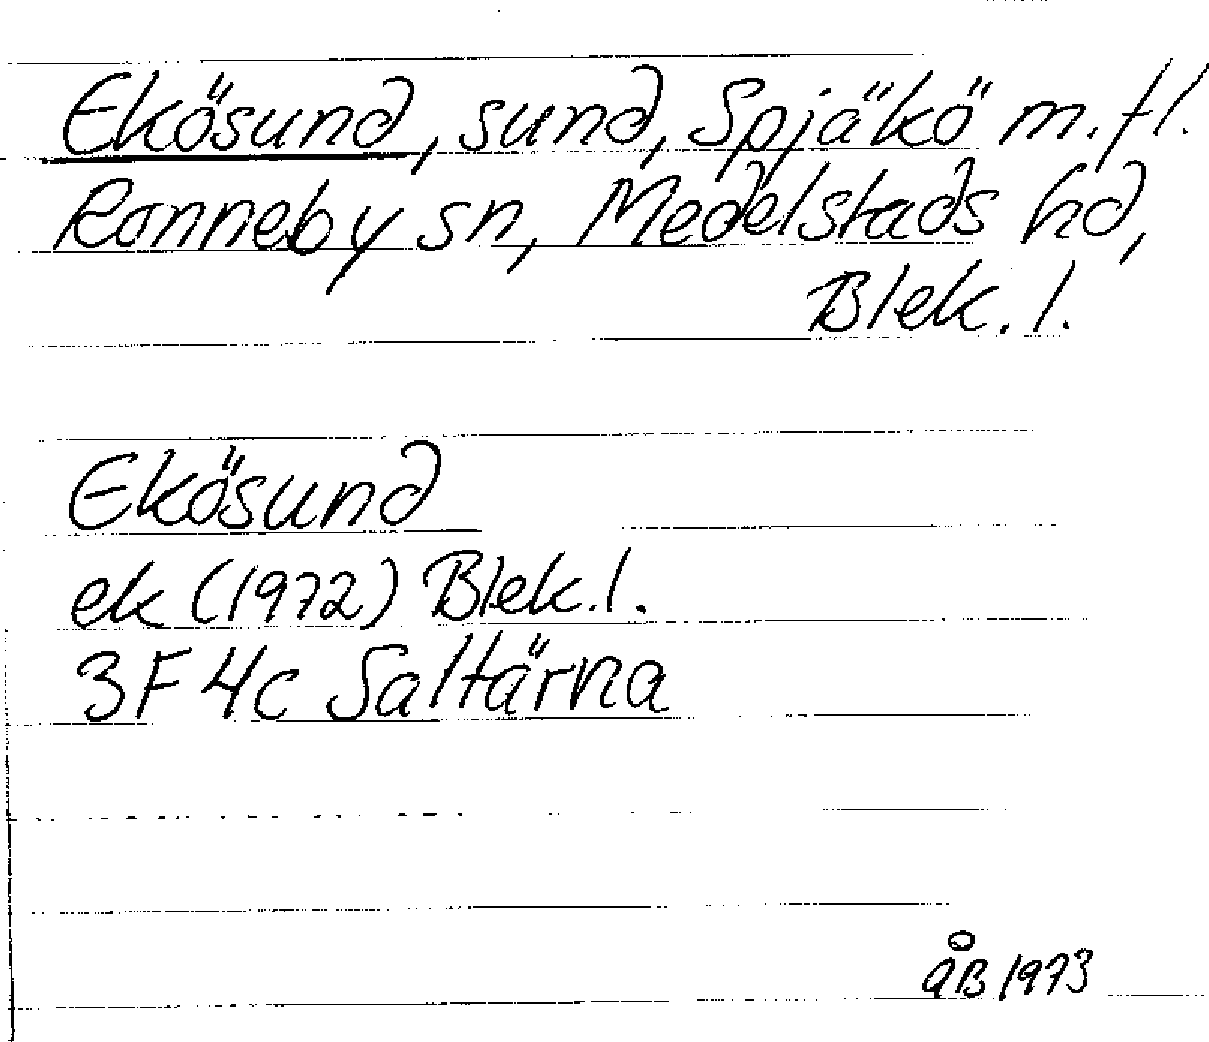 Ekösund, sund, Spjäkö m.fl.
Ronneby sn, Medelstads hd,
Blek. l.
Ekösund
ek (1972) Blek. l.
3F 4c Saltärna
åB 1973